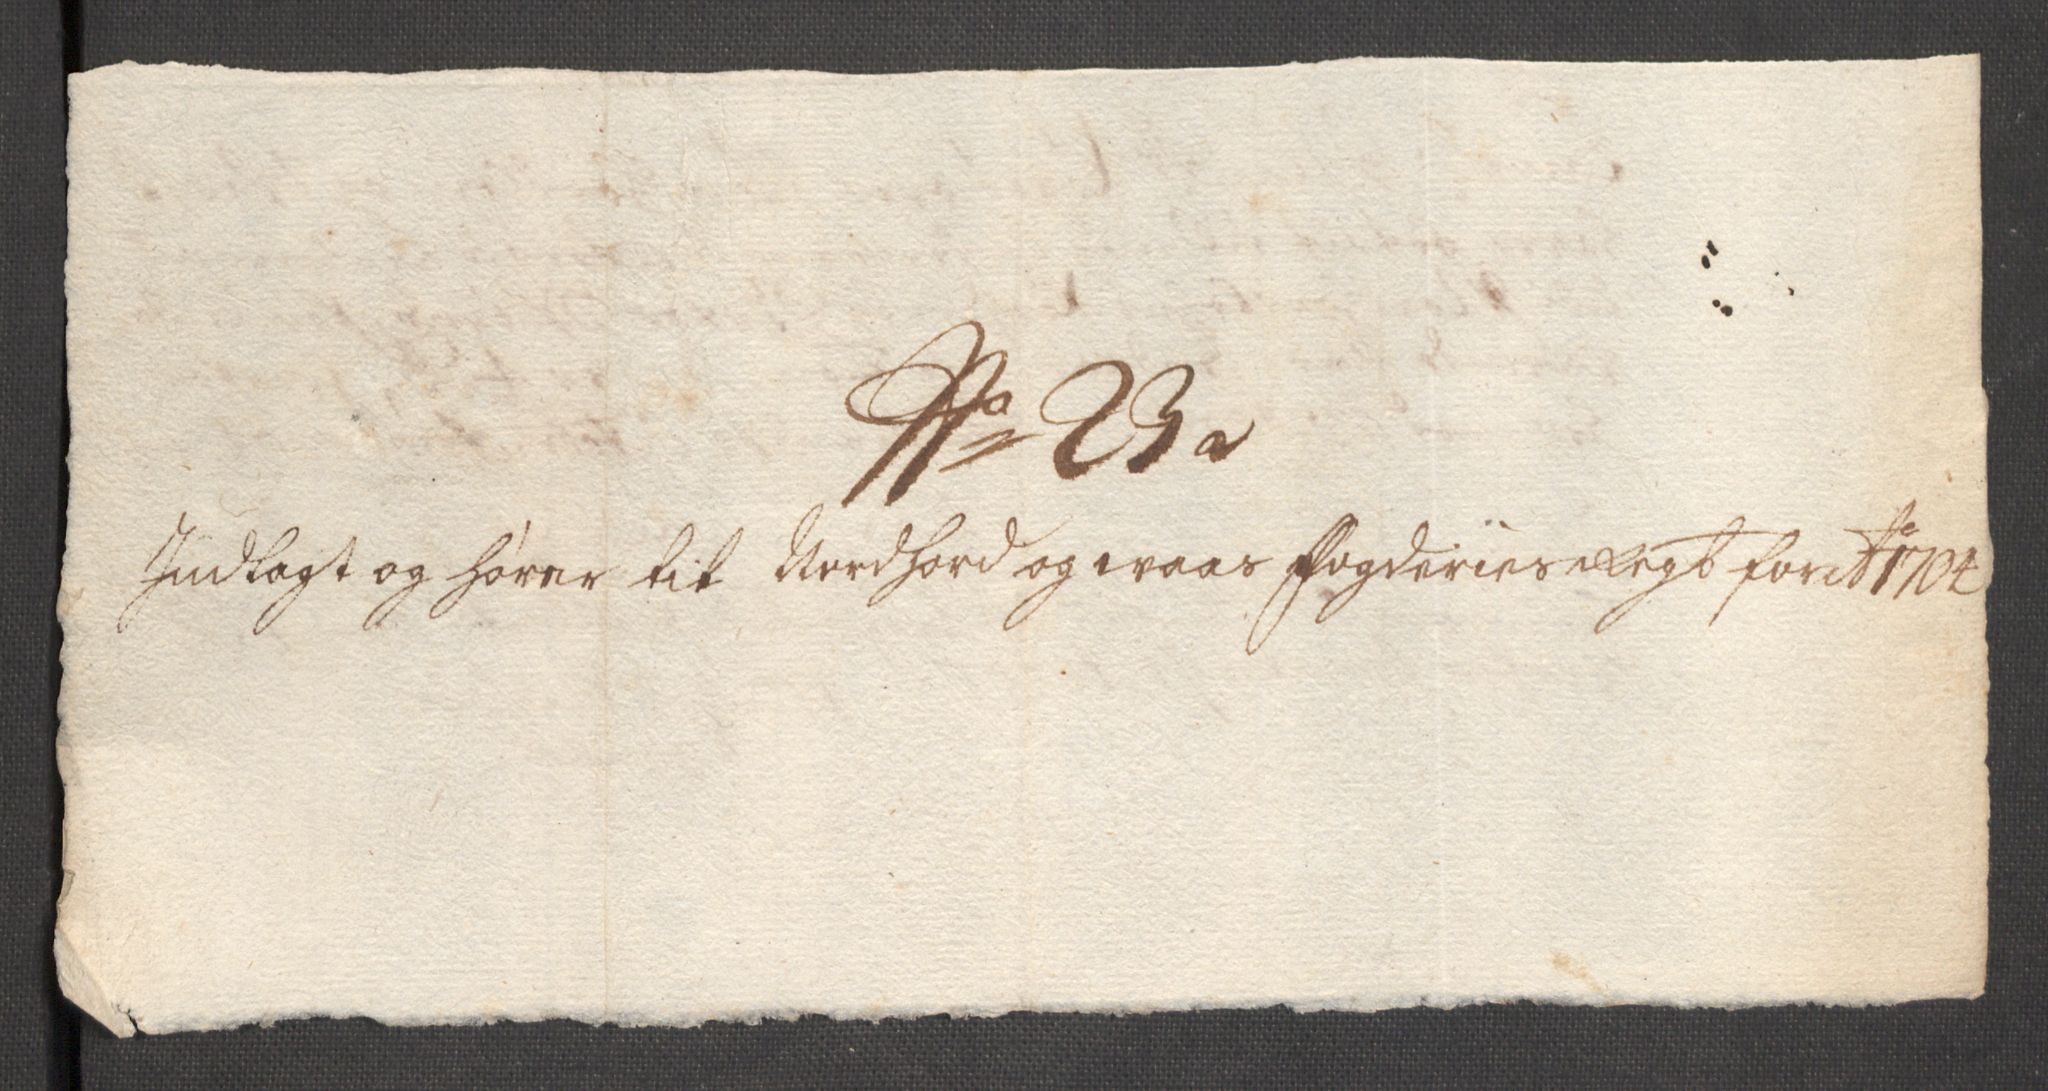 No 23
Indlagt og hører til Nordhord og waas fogderies Regb for Ao 1704